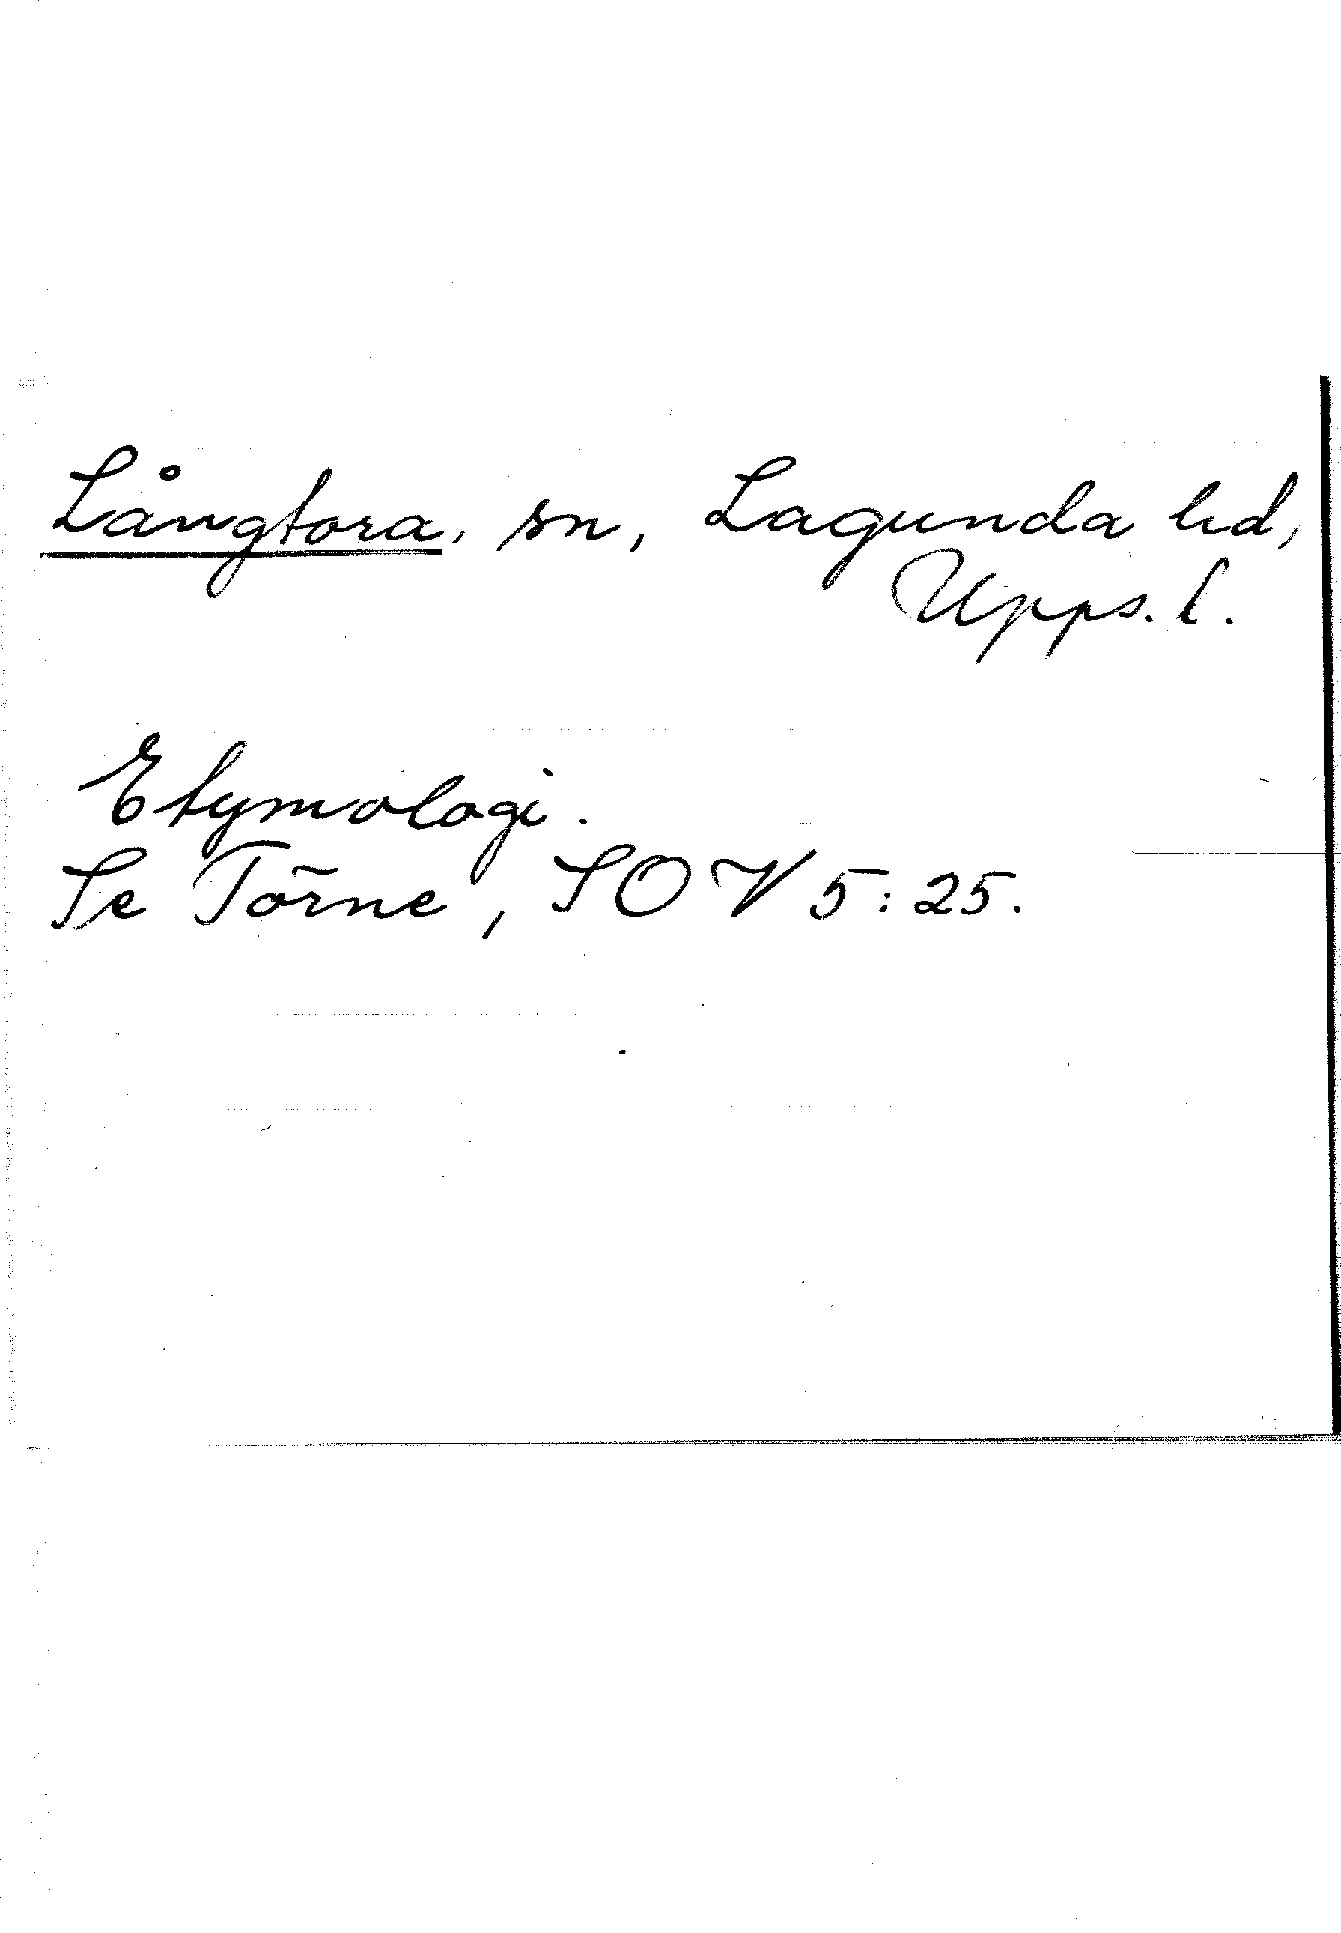 Långtora, sn, Lagunda hd,
Upps. l.
Etymologi.
Se Törne, SOV 5: 25.